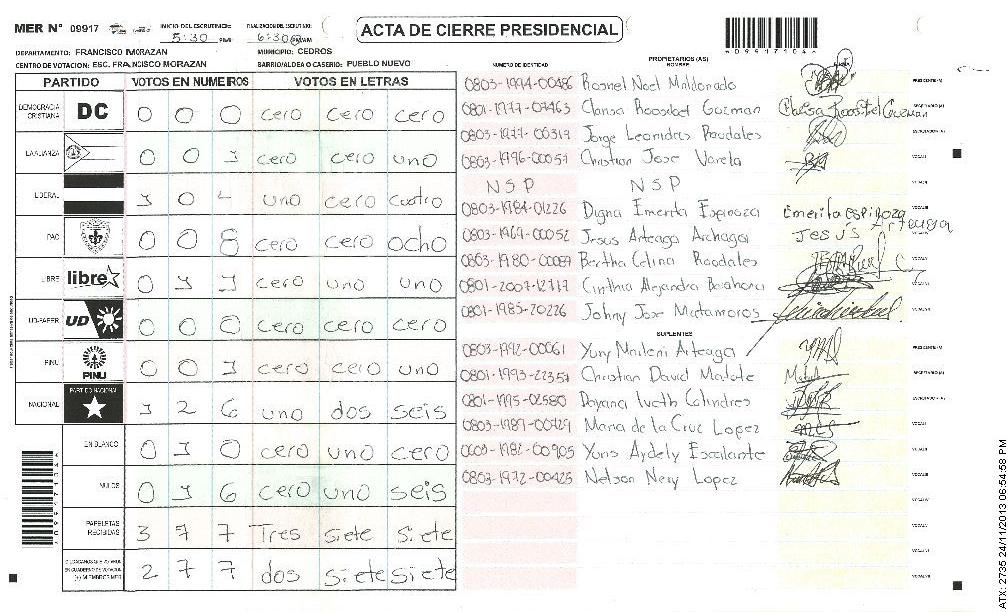 MER N° 09917 INICIO DEL ESCRUTINIO: 5:30 FINALIZACION DEL ESCRUTINIO: 6:30 ACTA DE CIERRE PRESIDENCIAL
DEPARTAMENTO: FRANCISCO MORAZAN MUNICIPIO: CEDROS
CENTRO DE VOTACION: ESC. FRANCISCO MORAZAN BARRIO/ALDEA O CASERIO: PUEBLO NUEVO
PARTIDO VOTOS EN NUMEROS VOTOS EN LETRAS
DEMOCRACIA CRISTIANA DC 0 0 0 cero cero cero
LA ALIANZA 0 0 1 cero cero uno
LIBERAL 1 0 4 uno cero cuatro
PAC 0 0 8 cero cero ocho
LIBRE libre 0 1 1 cero uno uno
UD-FAPER UD 0 0 0 cero cero cero
PINU PINU 0 0 1 cero cero uno
NACIONAL PARTIDO NACIONAL 1 2 6 uno dos seis
EN BLANCO 0 1 0 cero uno cero
NULOS 0 1 6 cero uno seis
PAPELETAS RECIBIDAS 3 7 7 Tres siete siete
CIUDADANOS QUE VOTARON EN CUADERNO DE VOTACION (+) MIEMBROS MER 2 7 7 dos siete siete
PROPIETARIOS (AS)
NUMERO DE IDENTIDAD NOMBRE FIRMA
0803-1994-00486 Rosnel Noel Maldonado PRESIDENTE (A)
0801-1977-07463 Clarisa Roosibel Guzman SECRETARIO (A)
0803-1977-00319 Jorge Leandres Raudales ESCRUTADOR (A)
0803-1996-00059 Christian Jose Varela VOCAL I
NSP NSP VOCAL II
0803-1984-01226 Digna Emerita Espinoza Emerita Espinoza VOCAL III
0803-1969-00052 Jesus Arteaga Archaga Jesús Arteaga
0803-1980-00089 Bertha Celina Raudales
0801-2007-12717 Cinthia Alejandra Barahona
0801-1985-20226 Johny Jose Matamoros
SUPLENTES
0803-1992-00061 Yury Marleni Arteaga PRESIDENTE (A)
0801-1993-22357 Christian David Matute SECRETARIO (A)
0801-1995-02580 Dayana Iveth Colindres ESCRUTADOR (A)
0803-1989-00429 Maria de la Cruz Lopez VOCAL I
Yuris Aydely Escalante VOCAL II
0803-1972-00425 Nelson Nery Lopez VOCAL III
ATX: 2735 24/11/2013 06:54:58 PM